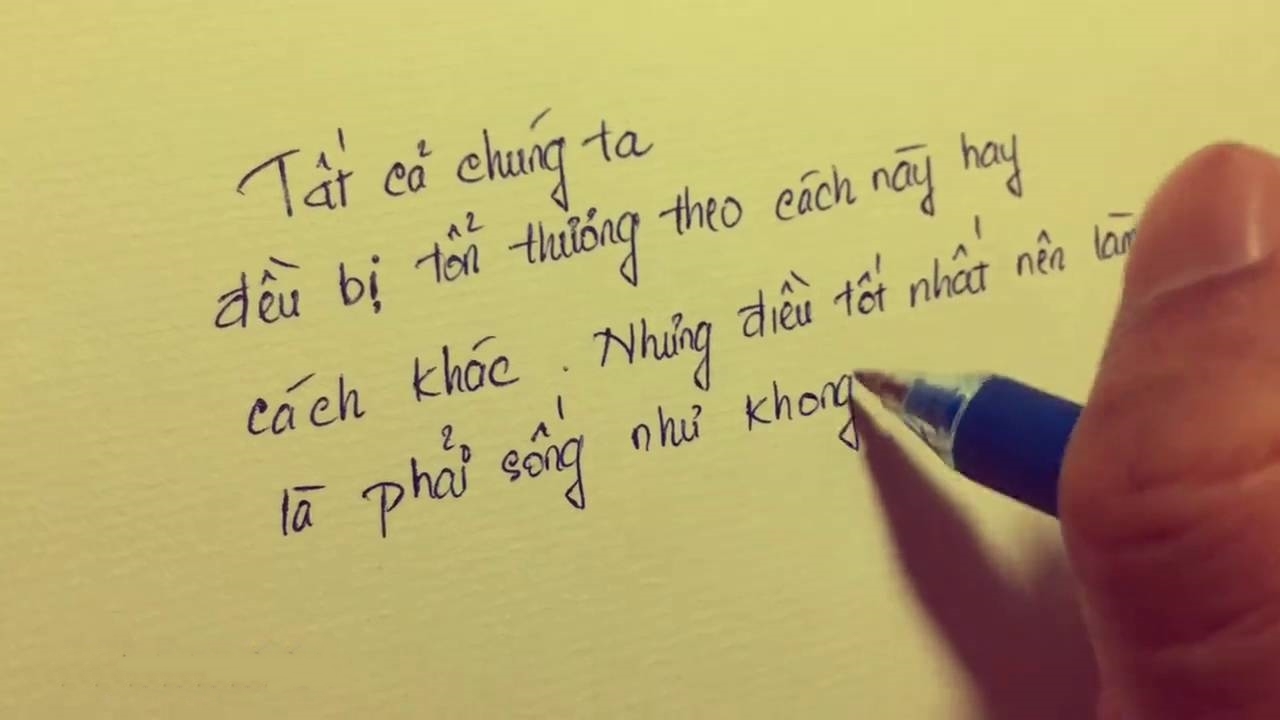 Tất cả chúng ta
đều bị tổn thương theo cách này hay
cách khác. Nhưng điều tốt nhất nên làm
là phải sống như khong